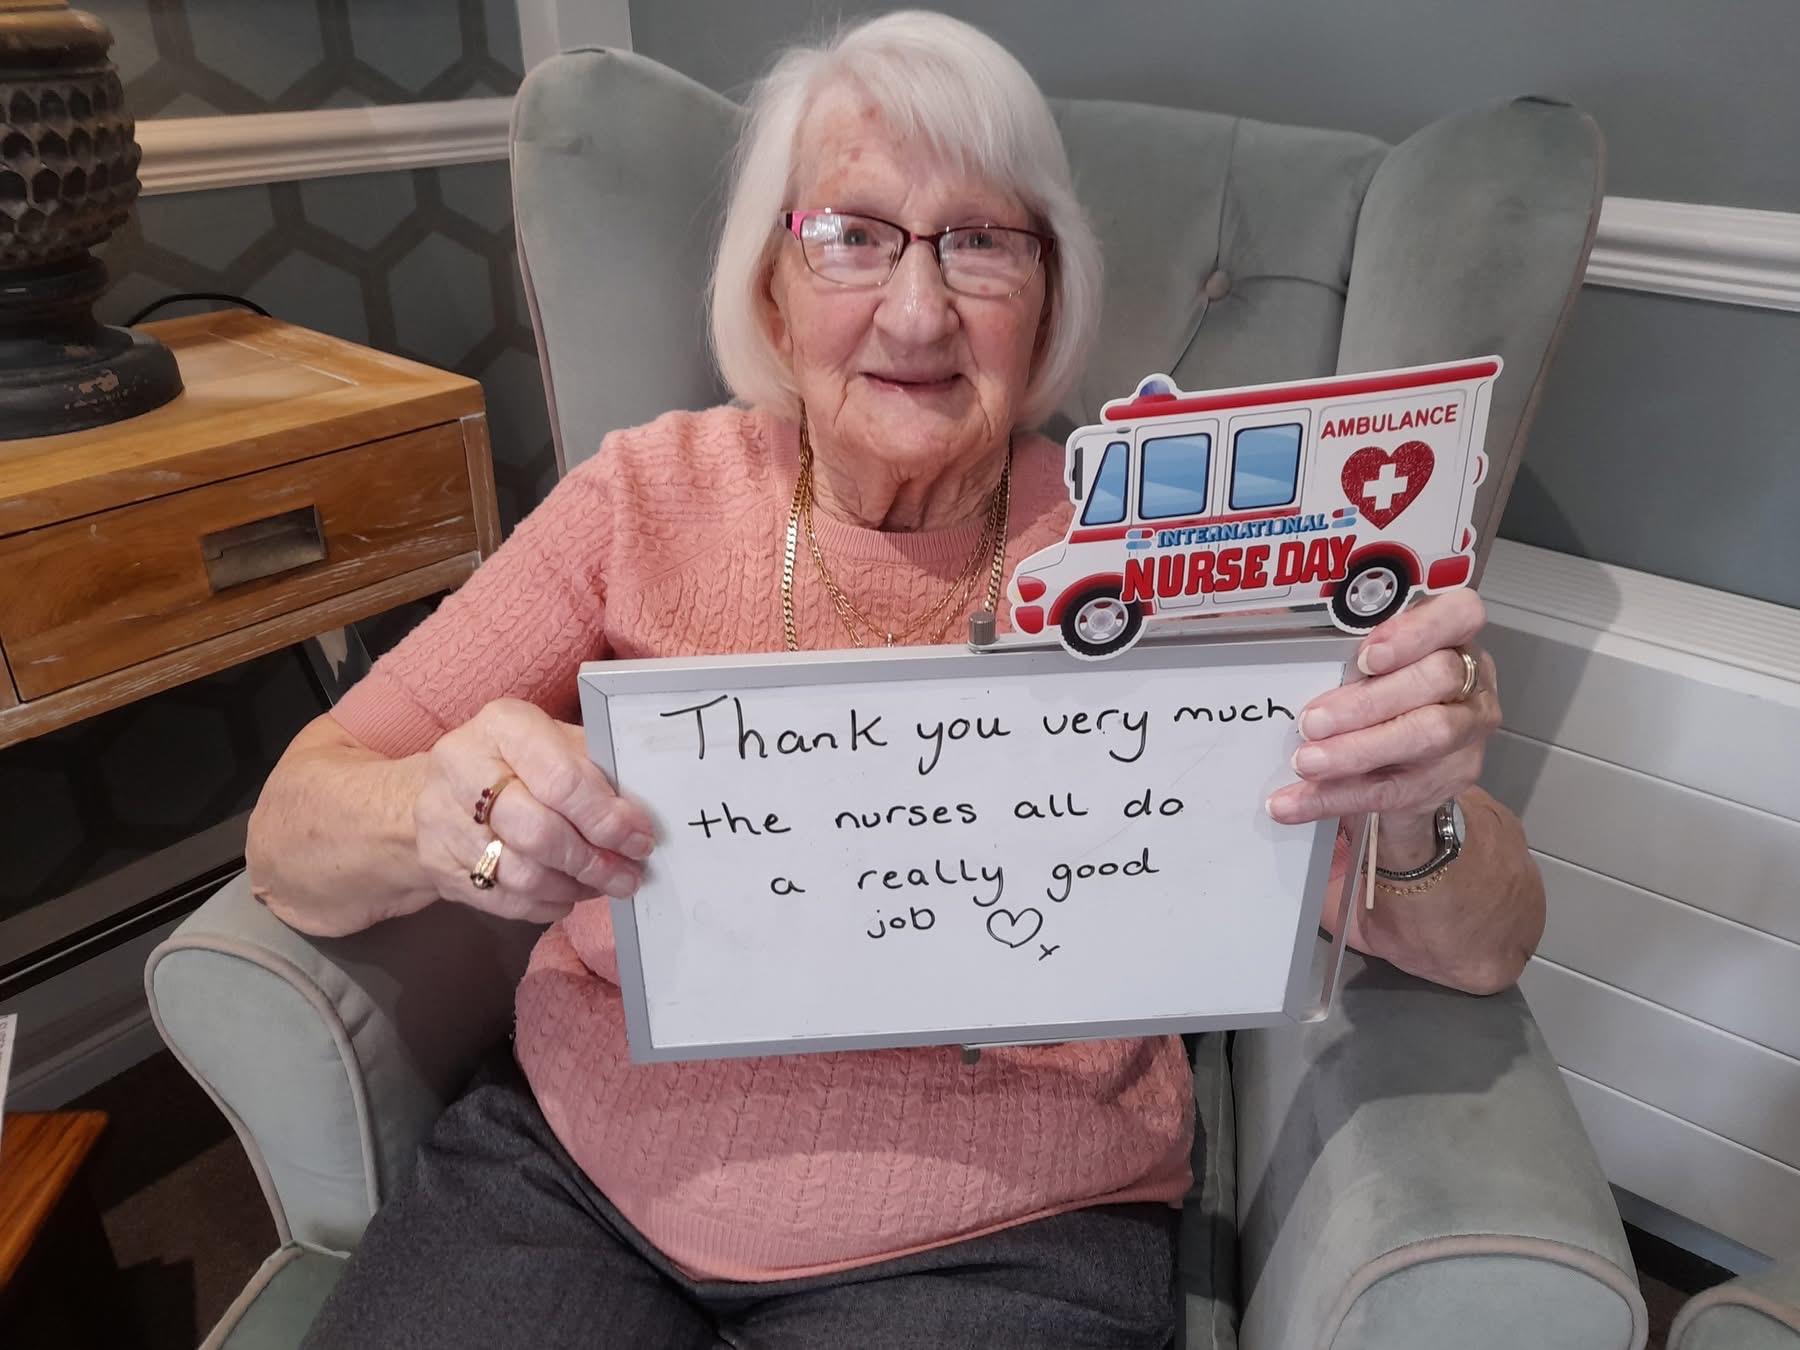 AMBULANCE
INTERNATIONAL
NURSE DAY
Thank you very much
the nurses all do
a really good
job ♡x